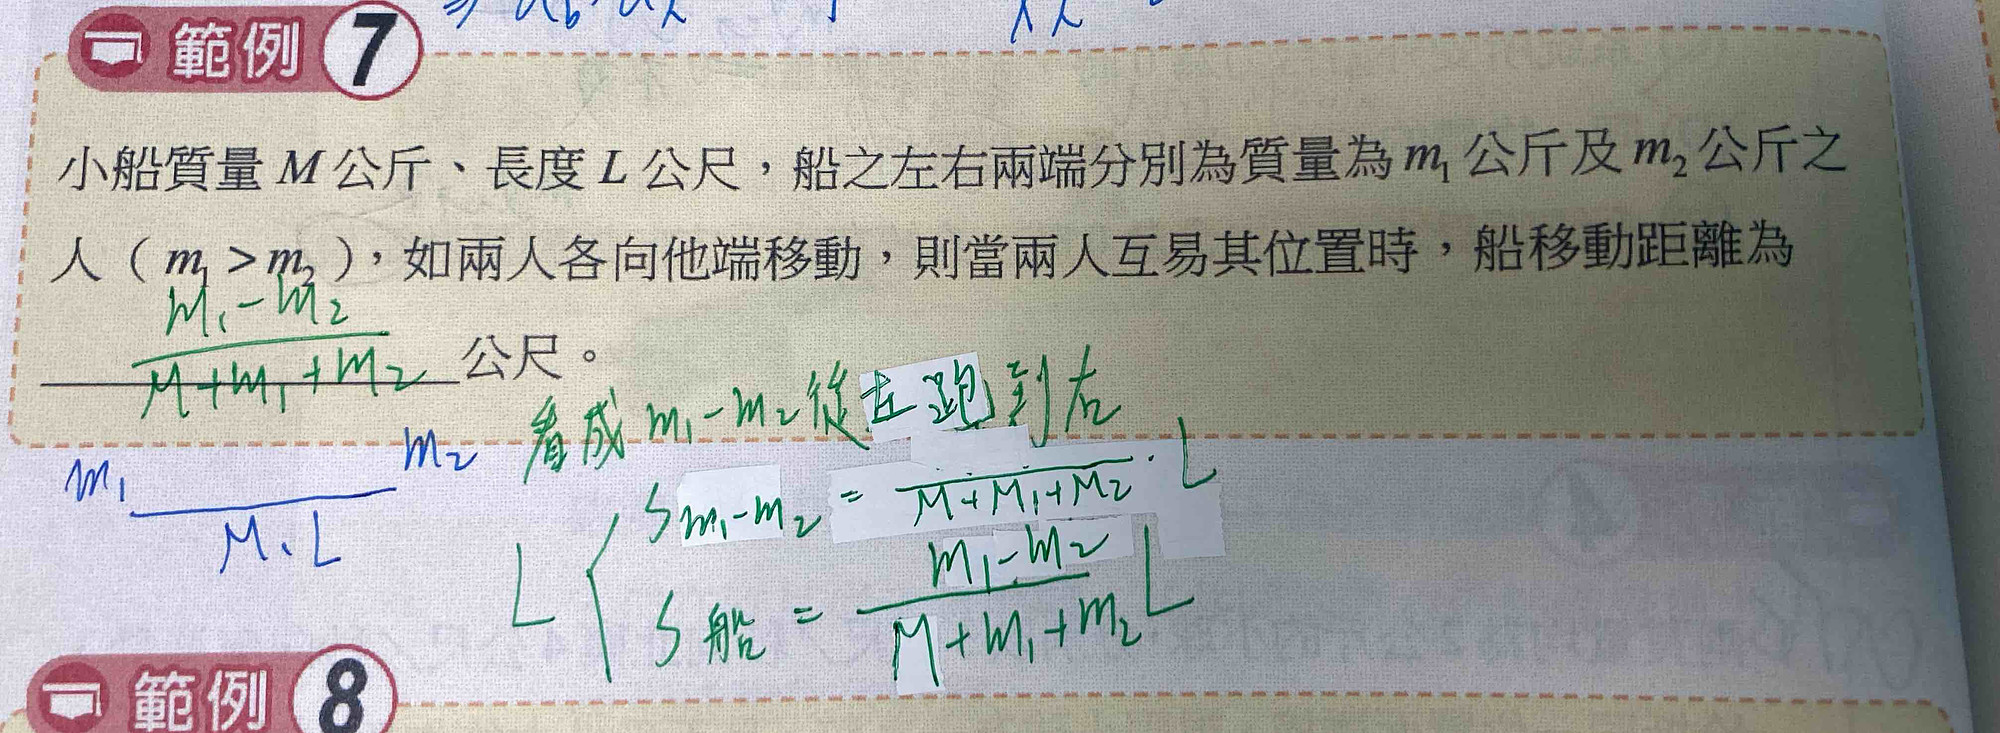 範例 7
小船質量 M 公斤、長度 L 公尺，船之左右兩端分別為質量為 m₁ 公斤及 m₂ 公斤之
人（ m₁ > m₂ ），如兩人各向他端移動，則當兩人互易其位置時，船移動距離為
m₁-m₂
M+m₁+m₂ 公尺。
看成 m₁-m₂ 從左跑到右
m₁ m₂
M、L
S m₁-m₂ = / M+m₁+m₂ · L
L { S船 = m₁-m₂ / M+m₁+m₂ L
範例 8